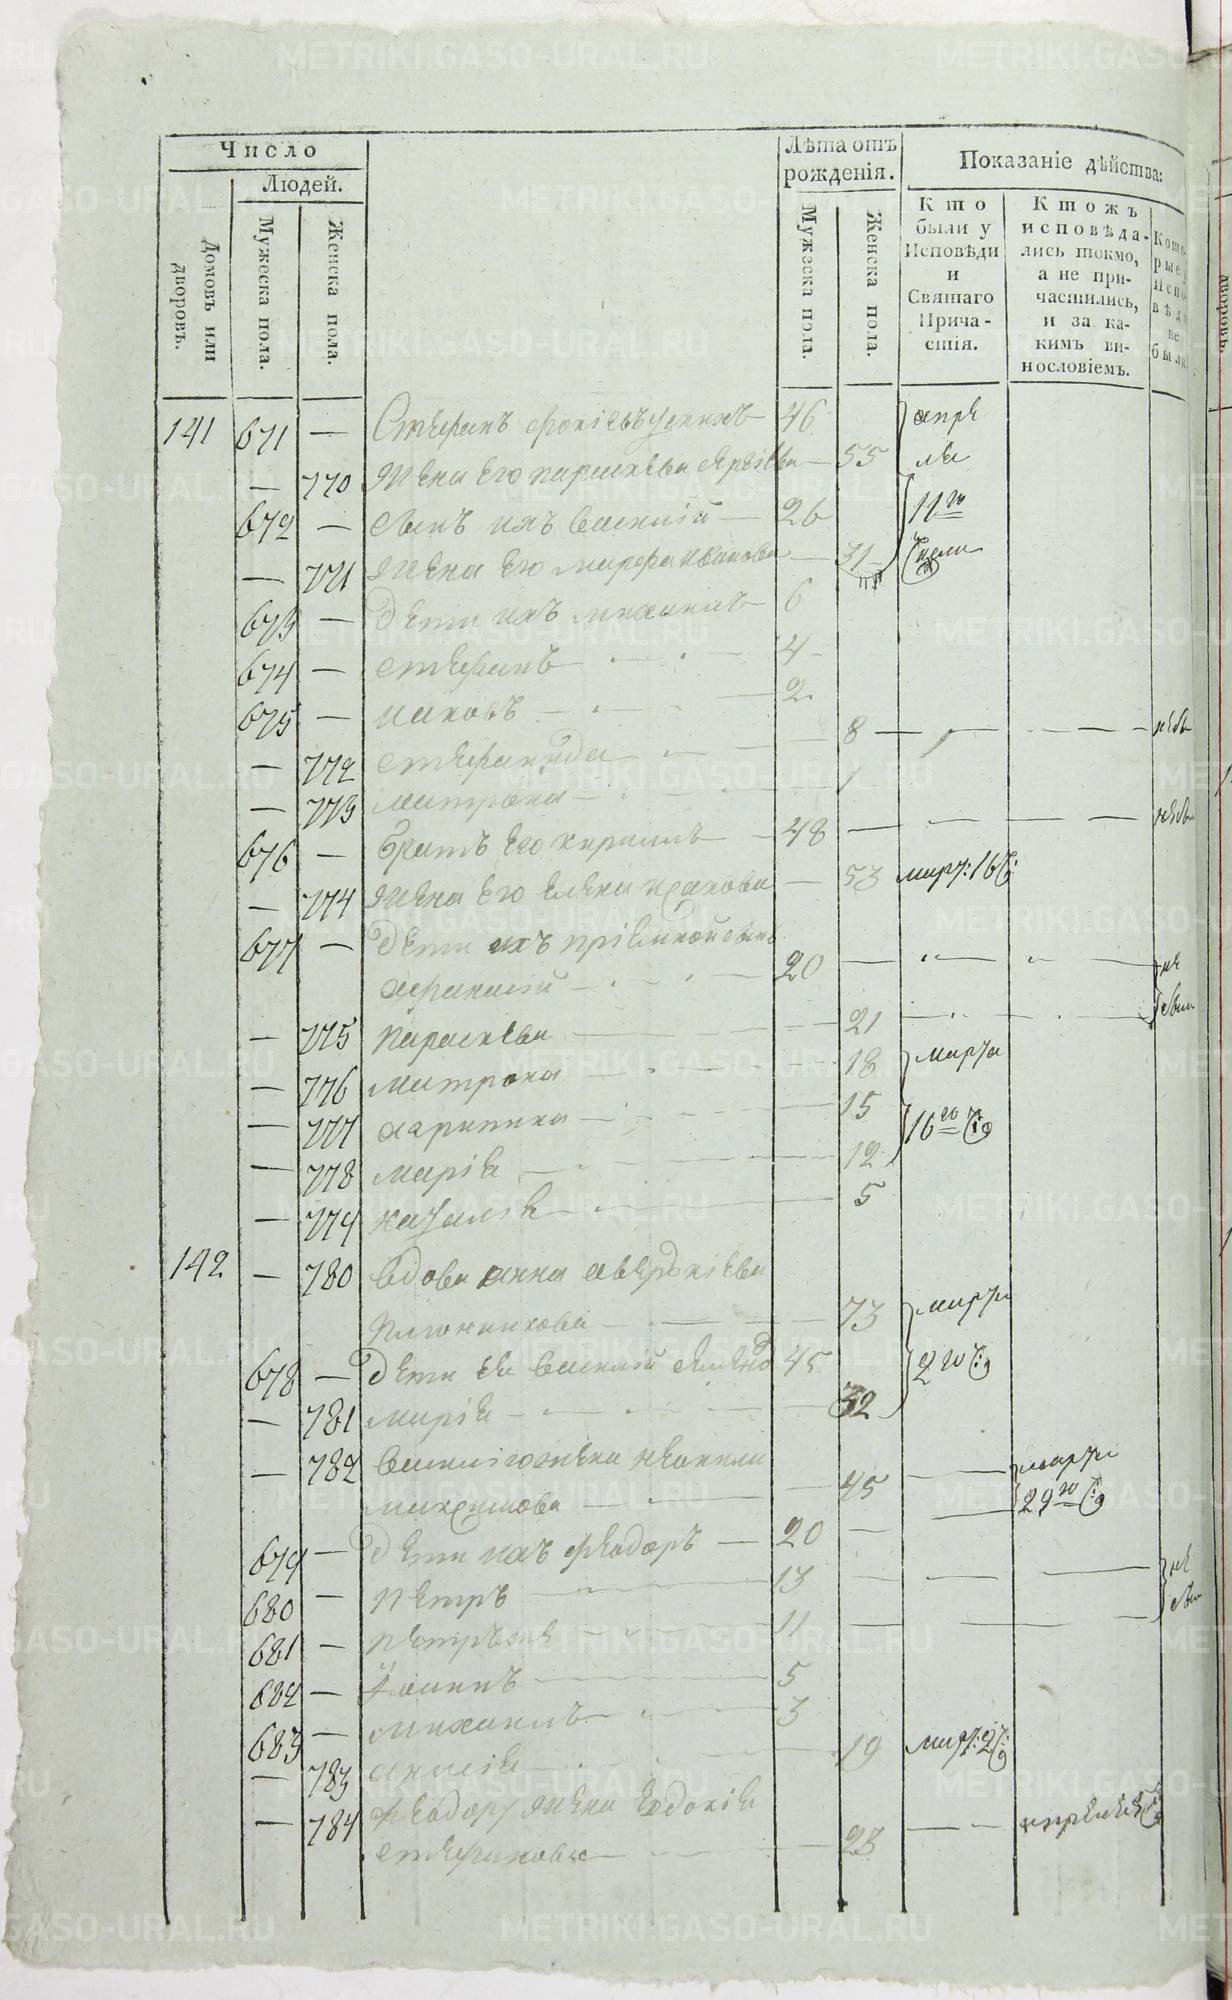 Число
Людей.
Домовъ или дворовъ.
Мужеска пола.
Женска пола.
Лѣта отъ рожденія.
Мужеска пола.
Женска пола.
Показаніе дѣйства:
Кто были у Исповѣди и Святаго Причастія.
Ктожъ исповѣдались токмо, а не причастились, и за какимъ винословіемъ.
Которые исповѣди не были
141 671 — Стефанъ 46 апре
— 770 жена его параскева 55 ля
672 — сынъ ихъ василій — 26 11го
— 771 жена его марфа иванова — 31
673 — дети ихъ михаилъ 6
674 — стефанъ 4
675 — иаковъ 2
— 772 стефанида 8
— 773 матрона 1
676 — братъ его кирилъ 48
— 774 жена его елена 53 март: 16
677 — дети ихъ пріемной сынъ
афанасій 20 не
— 775 параскева 21
— 776 матрона 18 марта
— 777 харитина 15 16го
— 778 маріа 12
— 779 наталіа 5
142 — 780 вдова анна аверкіева
73 марта
678 — дети ея василій 45 2го
— 781 маріа 32
— 782 жена неонила марта
максимова 45 29го
679 — дети ихъ феодоръ — 20
680 — петръ 13 не
681 — 11
682 — іоаннъ 5
683 — михаилъ 3
— 783 анасіа 19 март: 2
— 784 феодору жена евдокіа
стефанова 23
METRIKI.GASO-URAL.RU